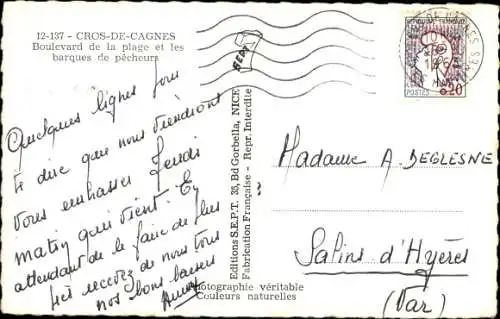 12-137 - CROS-DE-CAGNES
Boulevard de la plage et les
barques de pêcheurs
Quelques lignes pour
te dire que nous viendrons
vous embrasser Jeudi
matin qui vient. En
attendant de le faire de plus
près recevez de nous tous
nos bons baisers
Editions S.E.P.T. 33, Bd Gorbella, NICE
Fabrication Française - Repr. Interdite
Photographie véritable
Couleurs naturelles
REPUBLIQUE FRANÇAISE
POSTES 0.20
Madame A. DEGLESNE
Salins d'Hyères
(Var)